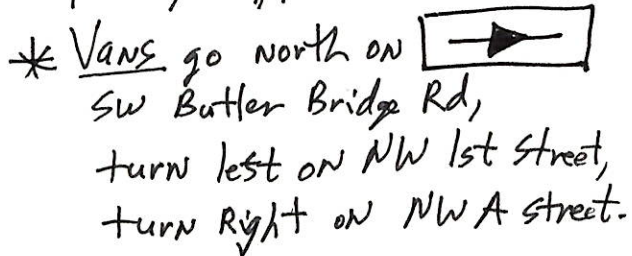 * Vans go North on
SW Butler Bridge Rd,
turn left on NW 1st Street,
turn Right on NW A street.